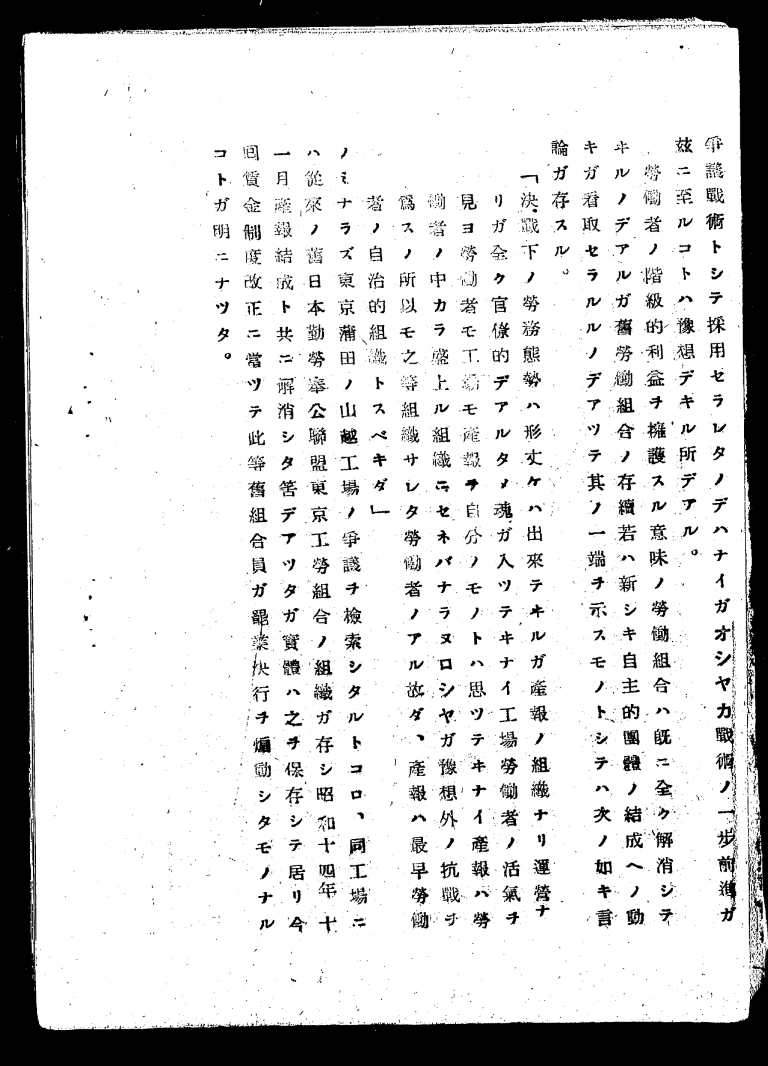 爭議戰術トシテ採用セラレタノデハナイガオシヤカ戰術ノ一步前進ガ
玆ニ至ルコトハ豫想デキル所デアル。
勞働者ノ階級的利益ヲ擁護スル意味ノ勞働組合ハ旣ニ全ク解消シテ
ヰルノデアルガ舊勞働組合ノ存續若ハ新シキ自主的團體ノ結成ヘノ動
キガ看取セラルルノデアツテ其ノ一端ヲ示スモノトシテハ次ノ如キ言
論ガ存スル。
「決戰下ノ勞務態勢ハ形丈ケハ出來テヰルガ產報ノ組織ナリ運營ナ
リガ全ク官僚的デアルタメ魂ガ入ツテヰナイ工場勞働者ノ活氣ヲ
見ヨ勞働者モ工場モ產報ヲ自分ノモノトハ思ツテヰナイ產報ハ勞
働者ノ中カラ盛上ル組織ニセネバナラヌロシヤガ豫想外ノ抗戰ヲ
爲スノ所以モ之等組織サレタ勞働者ノアル故ダ、產報ハ最早勞働
者ノ自治的組織トスベキダ」
ノミナラズ東京蒲田ノ山越工場ノ爭議ヲ檢索シタルトコロ、同工場ニ
ハ從來ノ舊日本勤勞奉公聯盟東京工勞組合ノ組織ガ存シ昭和十四年十
一月產報結成ト共ニ解消シタ筈デアツタガ實體ハ之ヲ保存シテ居リ今
回賃金制度改正ニ當ツテ此等舊組合員ガ罷業決行ヲ煽動シタモノナル
コトガ明ニナツタ。